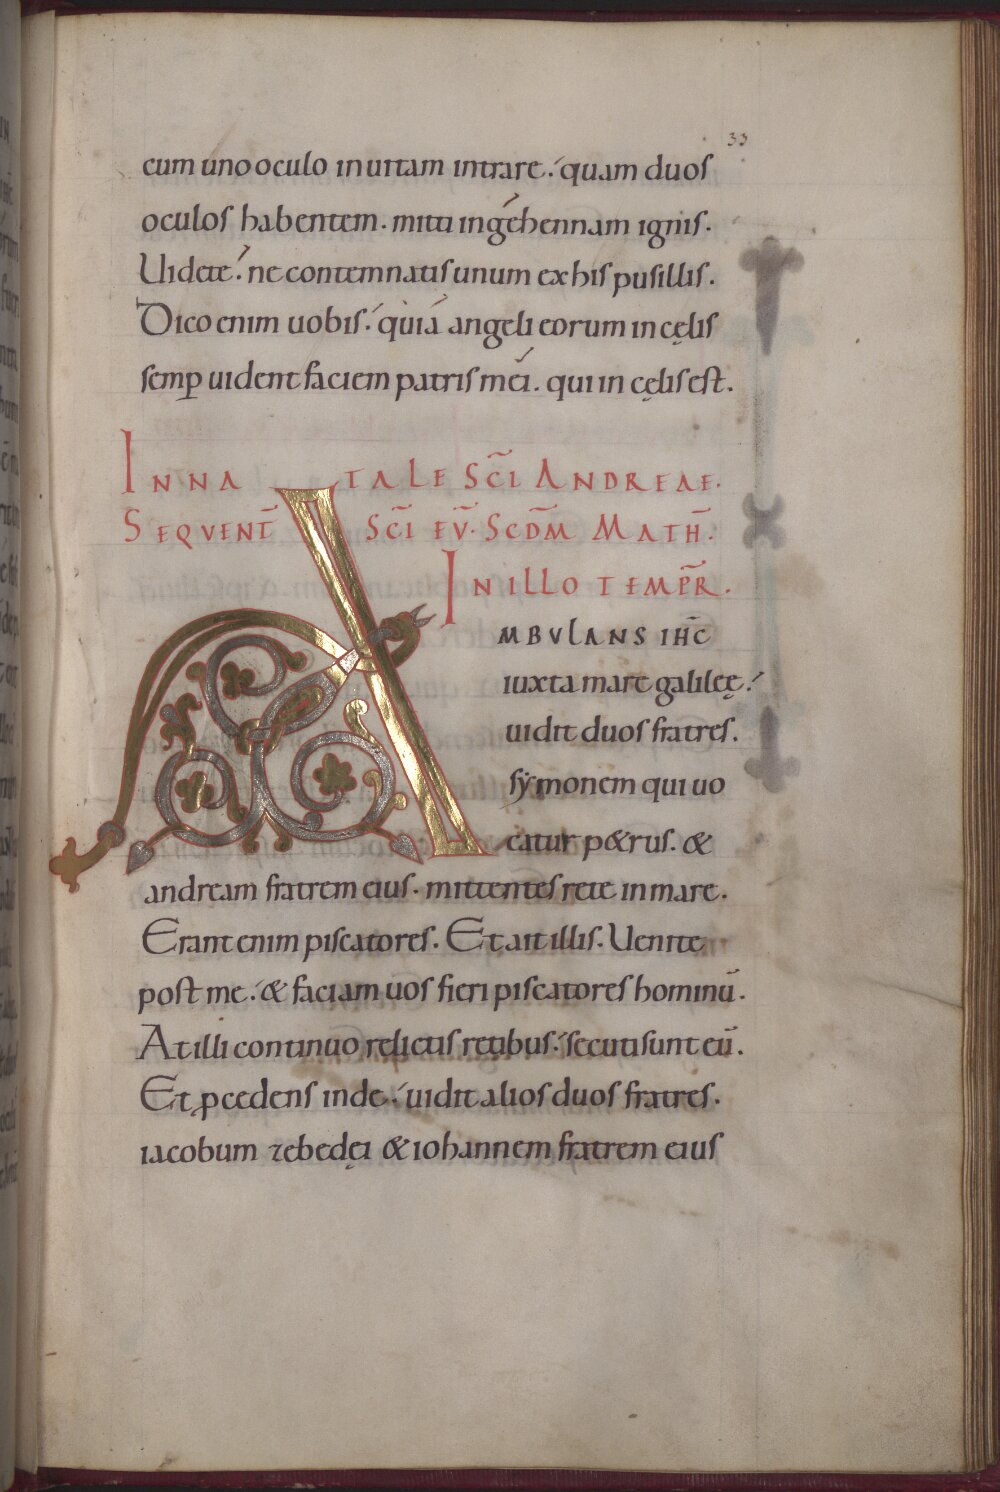 33
cum uno oculo in uitam intrare. quam duos
oculos habentem. mitti in gehennam ignis.
Uidete. ne contemnatis unum ex his pusillis.
Dico enim uobis. quia angeli eorum in cęlis
semp̲ uident faciem patris mei. qui in cęlis est.
IN NATALE SC̄I ANDREAE.
SEQVENT̄ SC̄I EV̄. SCD̄M MATH̄.
IN ILLO TEMP̄R.
AMBVLANS IH̄C
iuxta mare galileę.
uidit duos fratres.
sẏmonem qui uo
catur p&rus. &
andream fratrem eius. mittentes rete in mare.
Erant enim piscatores. Et ait illis. Uenite
post me. & faciam uos fieri piscatores hominū.
At illi continuo relictis retibus. secuti sunt eū.
Et ꝓcedens inde. uidit alios duos fratres.
iacobum zebedęi & iohannem fratrem eius